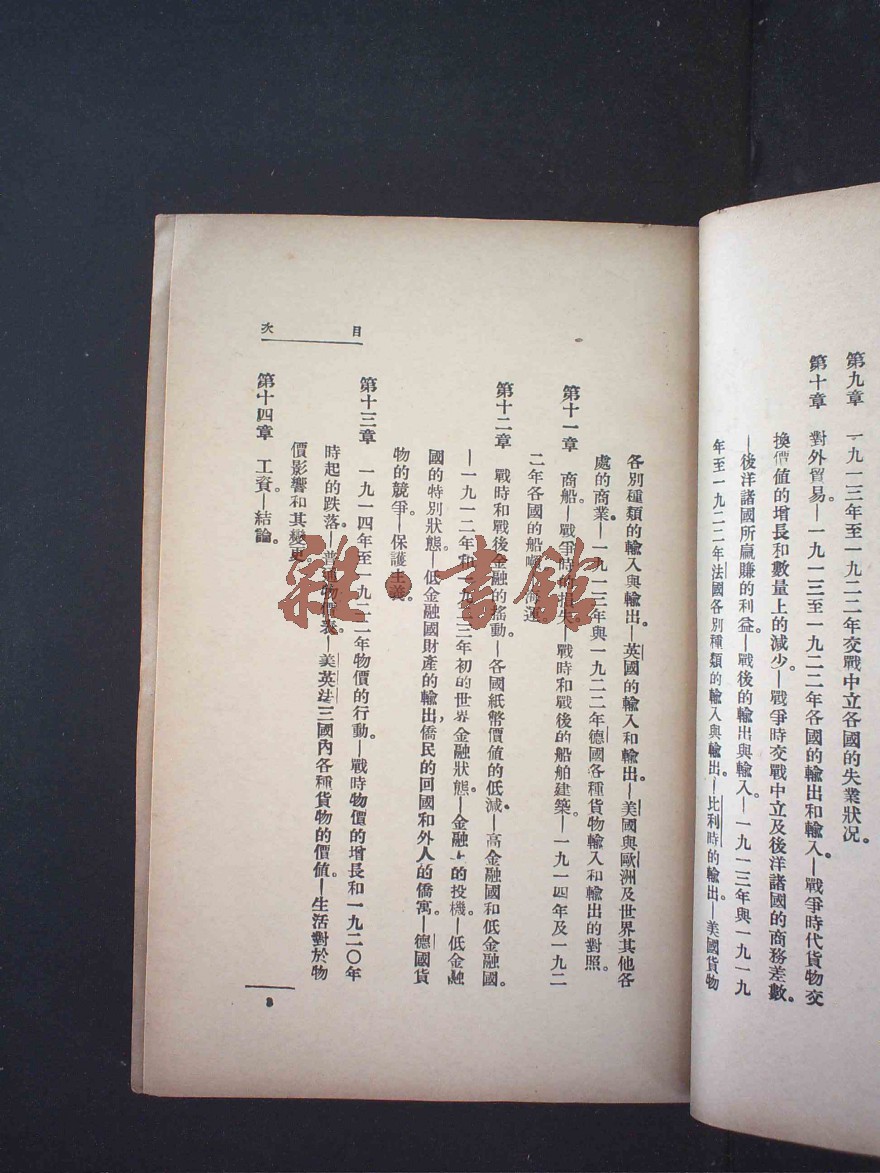 第九章 一九一三年至一九二二年交戰中立各國的失業狀况。
第十章 對外貿易。—一九一三至一九二二年各國的輸出和輸入。—戰爭時代貨物交
換價値的增長和數量上的減少。—戰爭時交戰中立及後洋諸國的商務差數。
—後洋諸國所贏賺的利益。—戰後的輸出與輸入。—一九一三年與一九一九
年至一九二二年法國各別種類的輸入與輸出。—比利時的輸出。—美國貨物
各別種類的輸入與輸出。—英國的輸入和輸出。—美國與歐洲及世界其他各
處的商業。—一九一三年與一九二二年德國各種貨物輸入和輸出的對照。
第十一章 商船。—戰爭時的損失。—戰時和戰後的船舶建築。—一九一四年及一九二
二年各國的船噸 海運。
第十二章 戰時和戰後金融的搖動。—各國紙幣價值的低減。—高金融國和低金融國。
—一九一二年和一九二三年初的世界金融狀態。—金融上的投機。—低金融
國的特別狀態。—低金融國財產的輸出，僑民的回國和外人的僑寓。—德國貨
物的競爭。—保護主義。
第十三章 一九一四年至一九二二年物價的行動。—戰時物價的增長和一九二〇年
時起的跌落。—普通物價表。—美英法三國內各種貨物的價值。—生活對於物
價影響和其變更
第十四章 工資。—結論。
目次
3
雜·書館